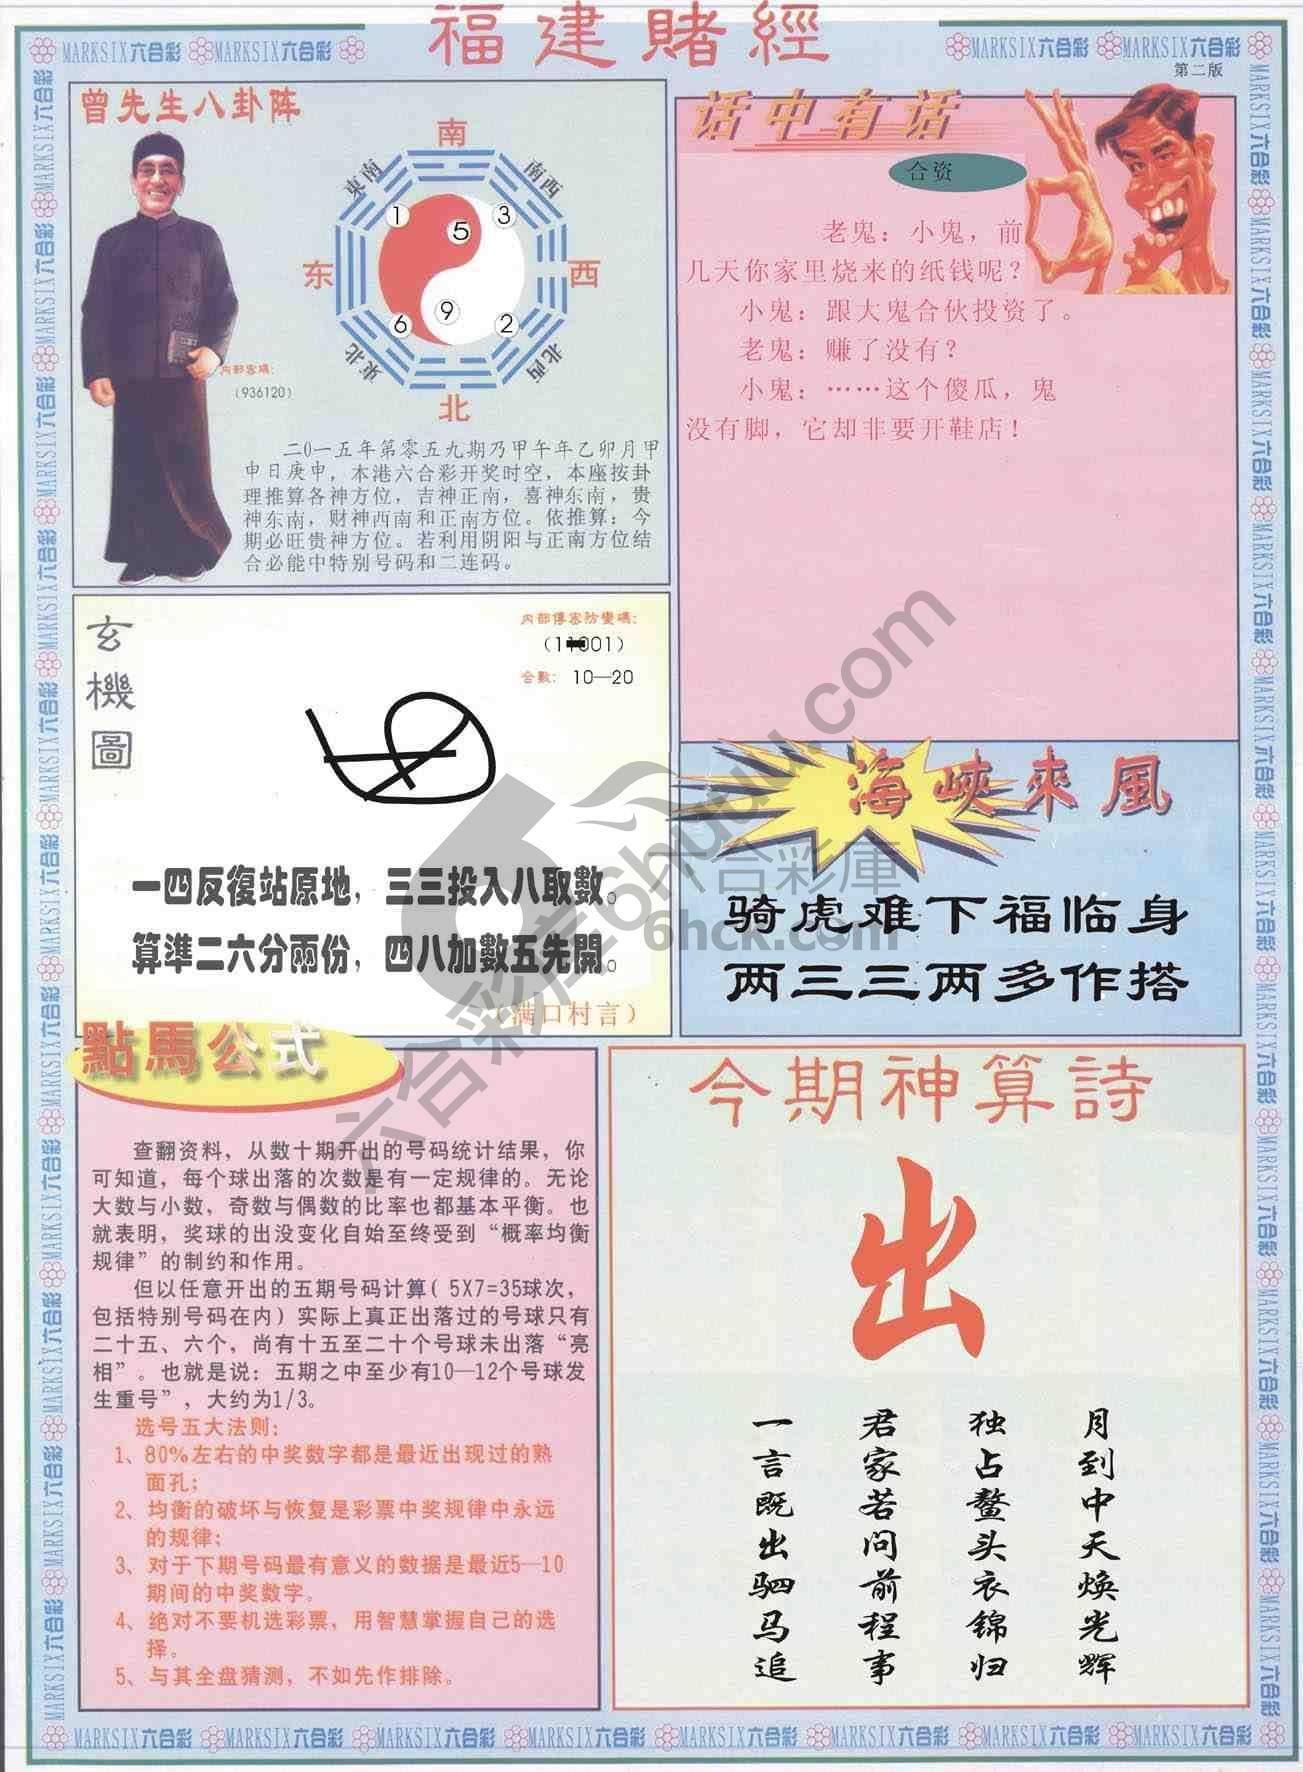 福建賭經
MARKSIX六合彩 MARKSIX六合彩
MARKSIX六合彩 MARKSIX六合彩
第二版
曾先生八卦阵
南
東南
南西
1
5
3
东
西
6
9
2
東北
北西
北
内部密碼:
(936120)
二0一五年第零五九期乃甲午年乙卯月甲
申日庚申，本港六合彩开奖时空，本座按卦
理推算各神方位，吉神正南，喜神东南，贵
神东南，财神西南和正南方位。依推算：今
期必旺贵神方位。若利用阴阳与正南方位结
合必能中特别号码和二连码。
话中有话
合资
老鬼：小鬼，前
几天你家里烧来的纸钱呢？
小鬼：跟大鬼合伙投资了。
老鬼：赚了没有？
小鬼：……这个傻瓜，鬼
没有脚，它却非要开鞋店！
玄機圖
内部傳密防變碼:
合數: 10—20
一四反復站原地，三三投入八取數。
算準二六分兩份，四八加數五先開。
（满口村言）
海峽來風
骑虎难下福临身
两三三两多作搭
點馬公式
查翻资料，从数十期开出的号码统计结果，你
可知道，每个球出落的次数是有一定规律的。无论
大数与小数，奇数与偶数的比率也都基本平衡。也
就表明，奖球的出没变化自始至终受到“概率均衡
规律”的制约和作用。
但以任意开出的五期号码计算( 5X7=35球次，
包括特别号码在内）实际上真正出落过的号球只有
二十五、六个，尚有十五至二十个号球未出落“亮
相”。也就是说：五期之中至少有10—12个号球发
生重号”，大约为1/3。
选号五大法则：
1、80%左右的中奖数字都是最近出现过的熟
面孔；
2、均衡的破坏与恢复是彩票中奖规律中永远
的规律；
3、对于下期号码最有意义的数据是最近5—10
期间的中奖数字。
4、绝对不要机选彩票，用智慧掌握自己的选
择。
5、与其全盘猜测，不如先作排除。
今期神算詩
出
月到中天焕光辉
独占鳌头衣锦归
君家若问前程事
一言既出驷马追
六合彩庫
6hck.com
六合彩庫6huuu.com
MARKSIX六合彩 MARKSIX六合彩 MARKSIX六合彩 MARKSIX六合彩 MARKSIX六合彩 MARKSIX六合彩 MARKSIX六合彩 MARKSIX六合彩